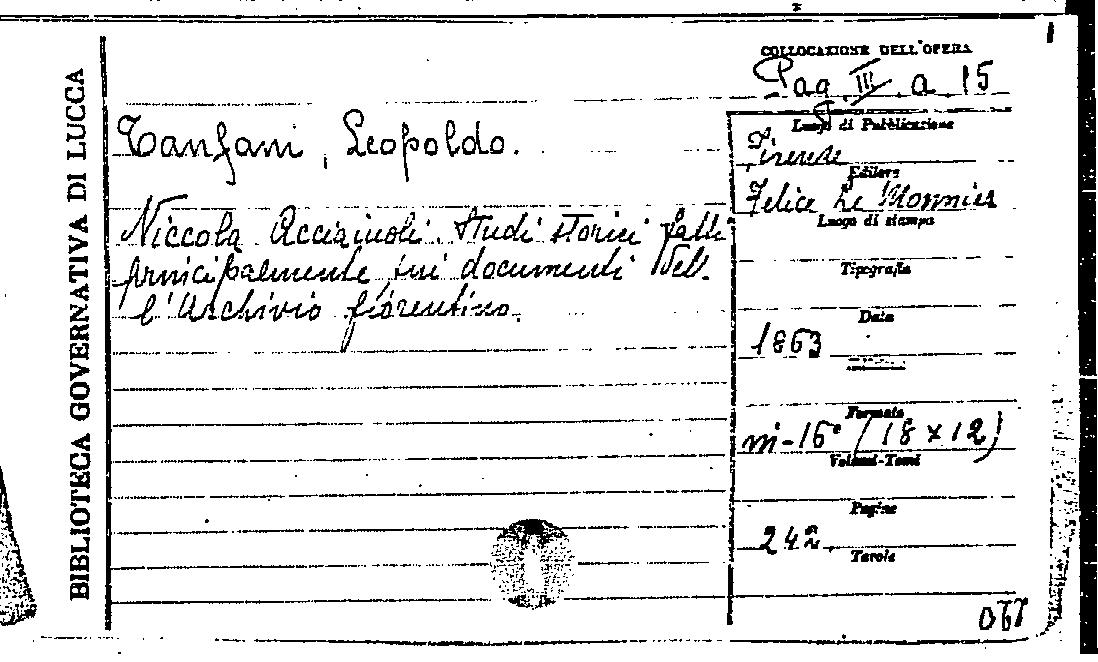 BIBLIOTECA GOVERNATIVA DI LUCCA
COLLOCAZIONE DELL'OPERA
Pag. III. a. 15
Tanfani, Leopoldo.
Niccola Acciaiuoli. Studi storici fatti
principalmente sui documenti del-
l'Archivio fiorentino.
Luogo di Pubblicazione
Firenze
Editore
Felice Le Monnier
Luogo di stampa
Tipografia
Data
1863
Formato
in-16° (18 x 12)
Volumi-Tomi
Pagine
242.
Tavole